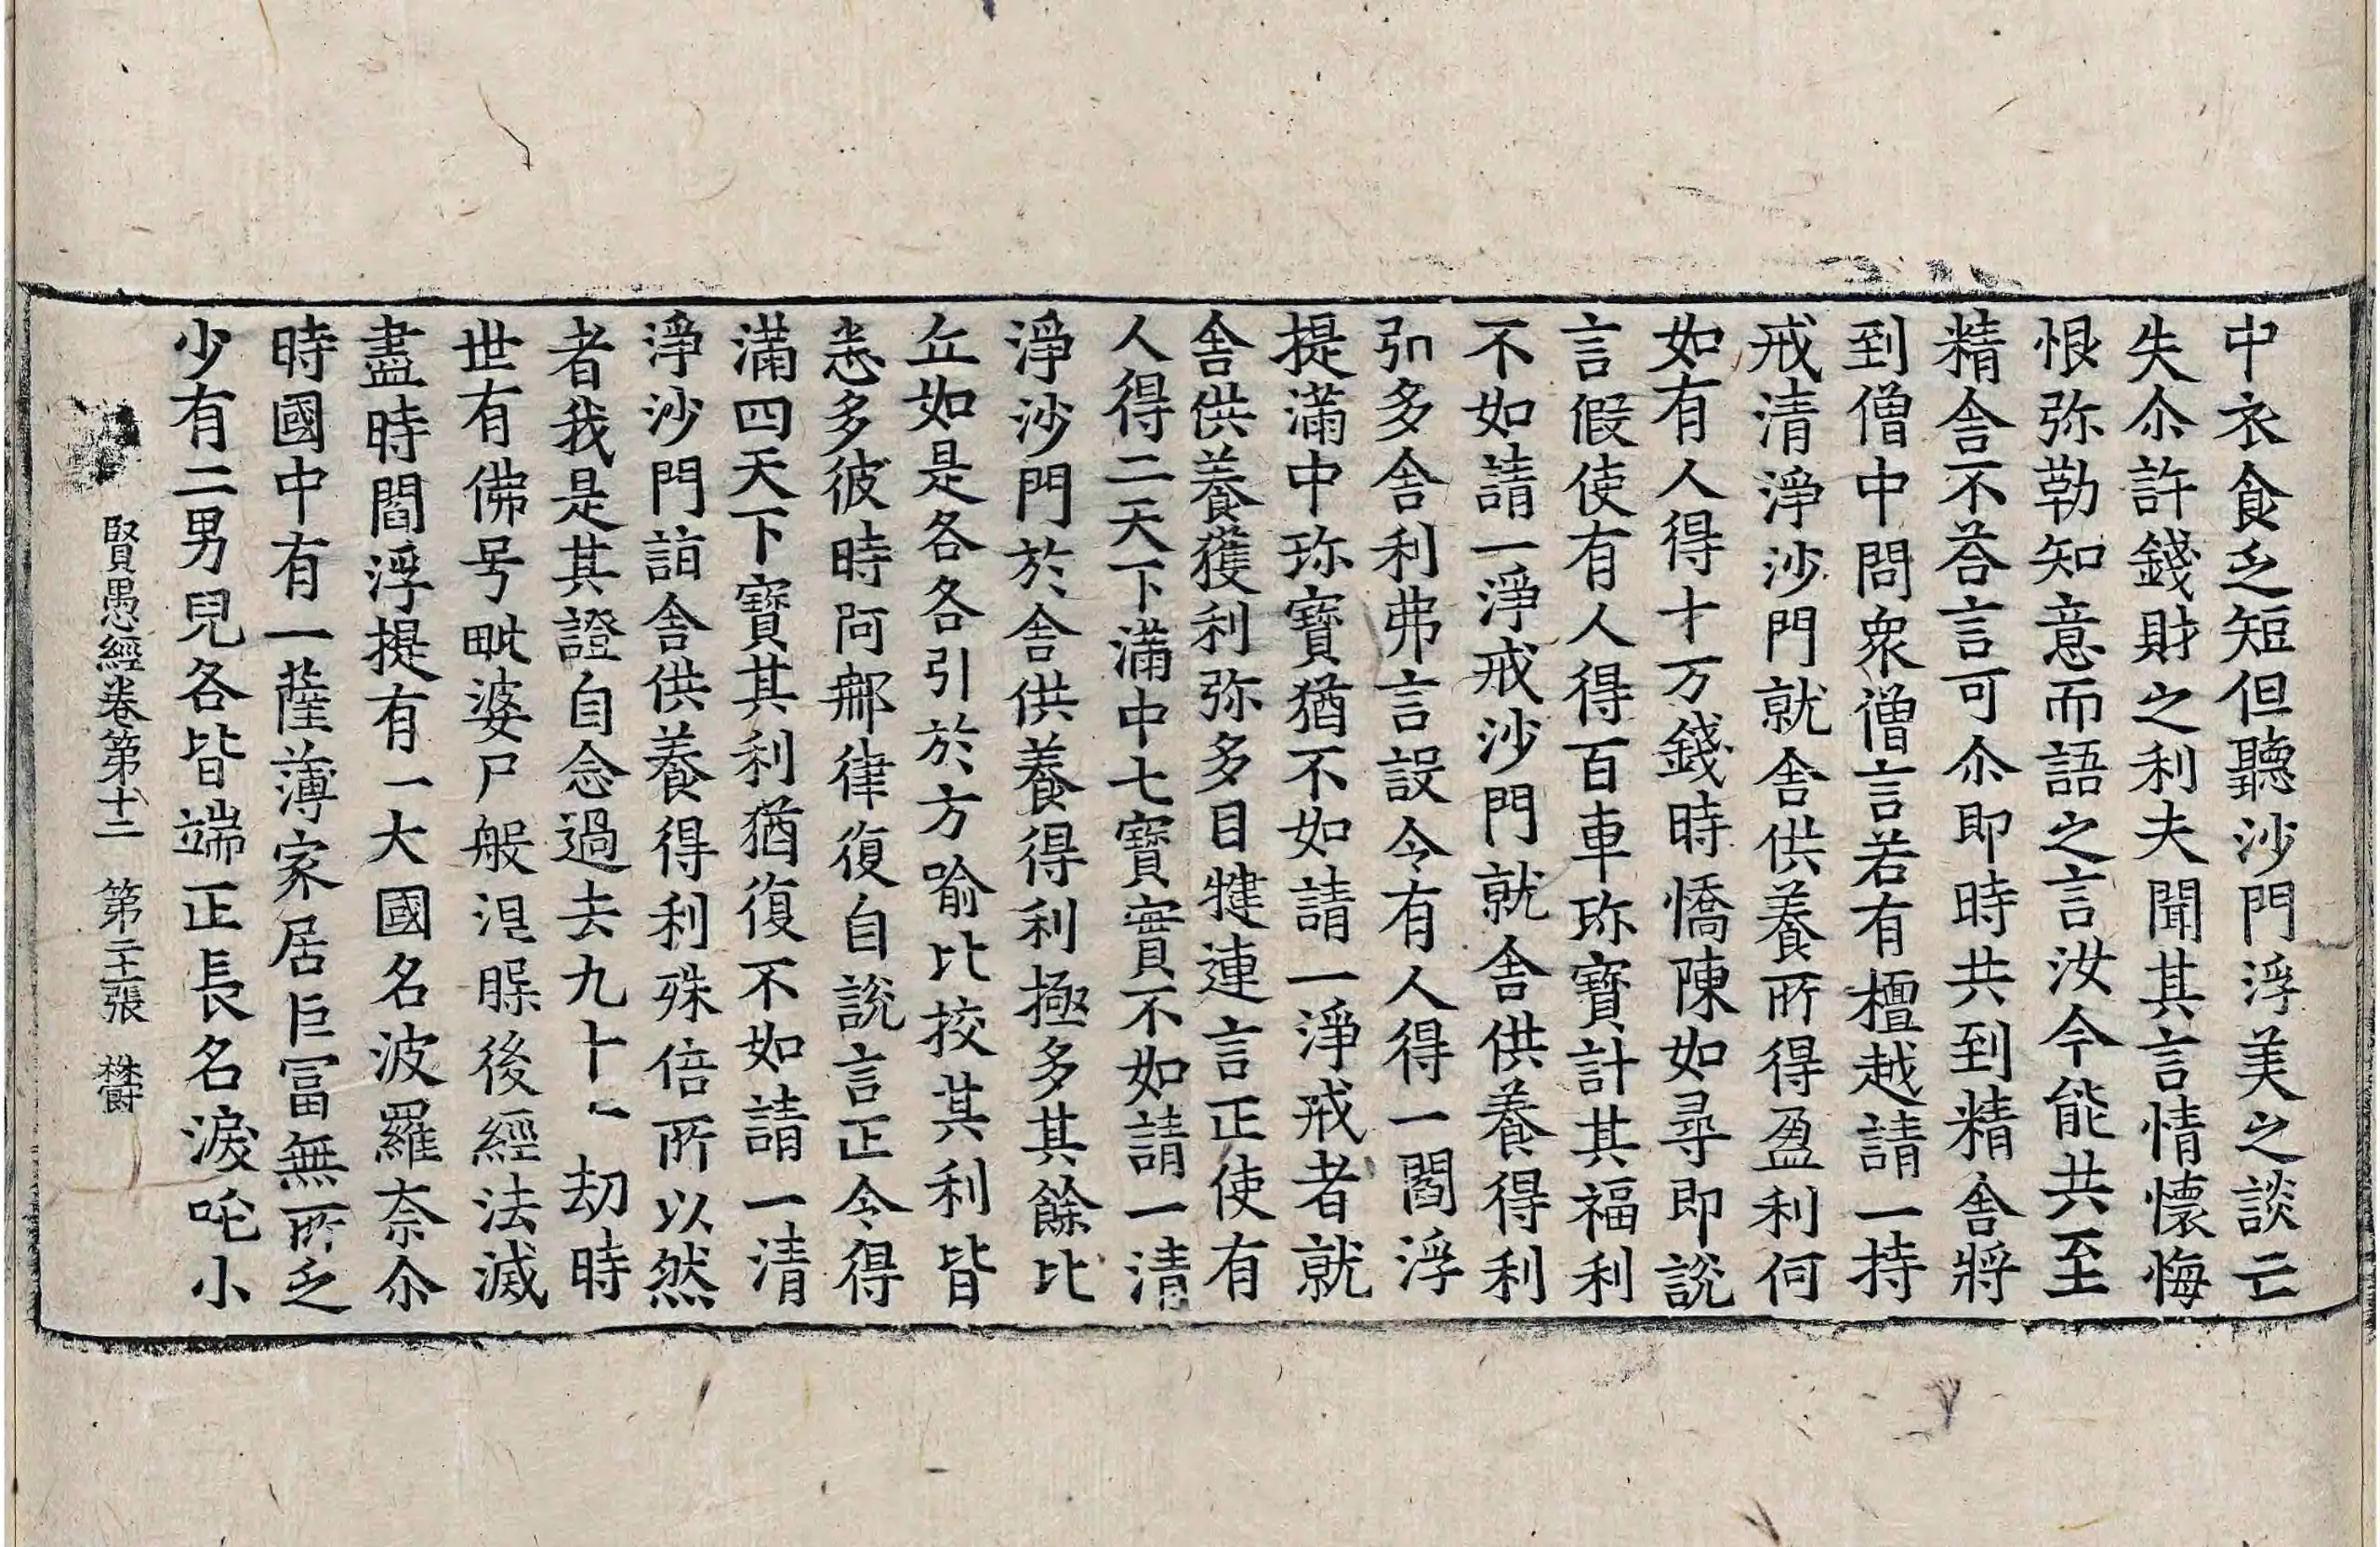 中衣食乏短但聽沙門浮美之談亡
失尒許錢財之利夫聞其言情懷悔
恨弥勒知意而語之言汝今能共至
精舍不荅言可尒即時共到精舍將
到僧中問衆僧言若有檀越請一持
戒清淨沙門就舍供養所得盈利何
如有人得十万錢時憍陳如尋即說
言假使有人得百車珎寶計其福利
不如請一淨戒沙門就舍供養得利
弘多舍利弗言設令有人得一閻浮
提滿中珎寶猶不如請一淨戒者就
舍供養獲利弥多目犍連言正使有
人得二天下滿中七寶實不如請一清
淨沙門於舍供養得利極多其餘比
丘如是各各引於方喻比挍其利皆
悉多彼時阿那律復自說言正令得
滿四天下寶其利猶復不如請一清
淨沙門詣舍供養得利殊倍所以然
者我是其證自念過去九十一劫時
世有佛号毗婆尸般涅槃後經法滅
盡時閻浮提有一大國名波羅奈尒
時國中有一薩薄家居巨冨無所乏
少有二男兒各皆端正長名淚吒小
賢愚經卷第十二 第二十一張 欝